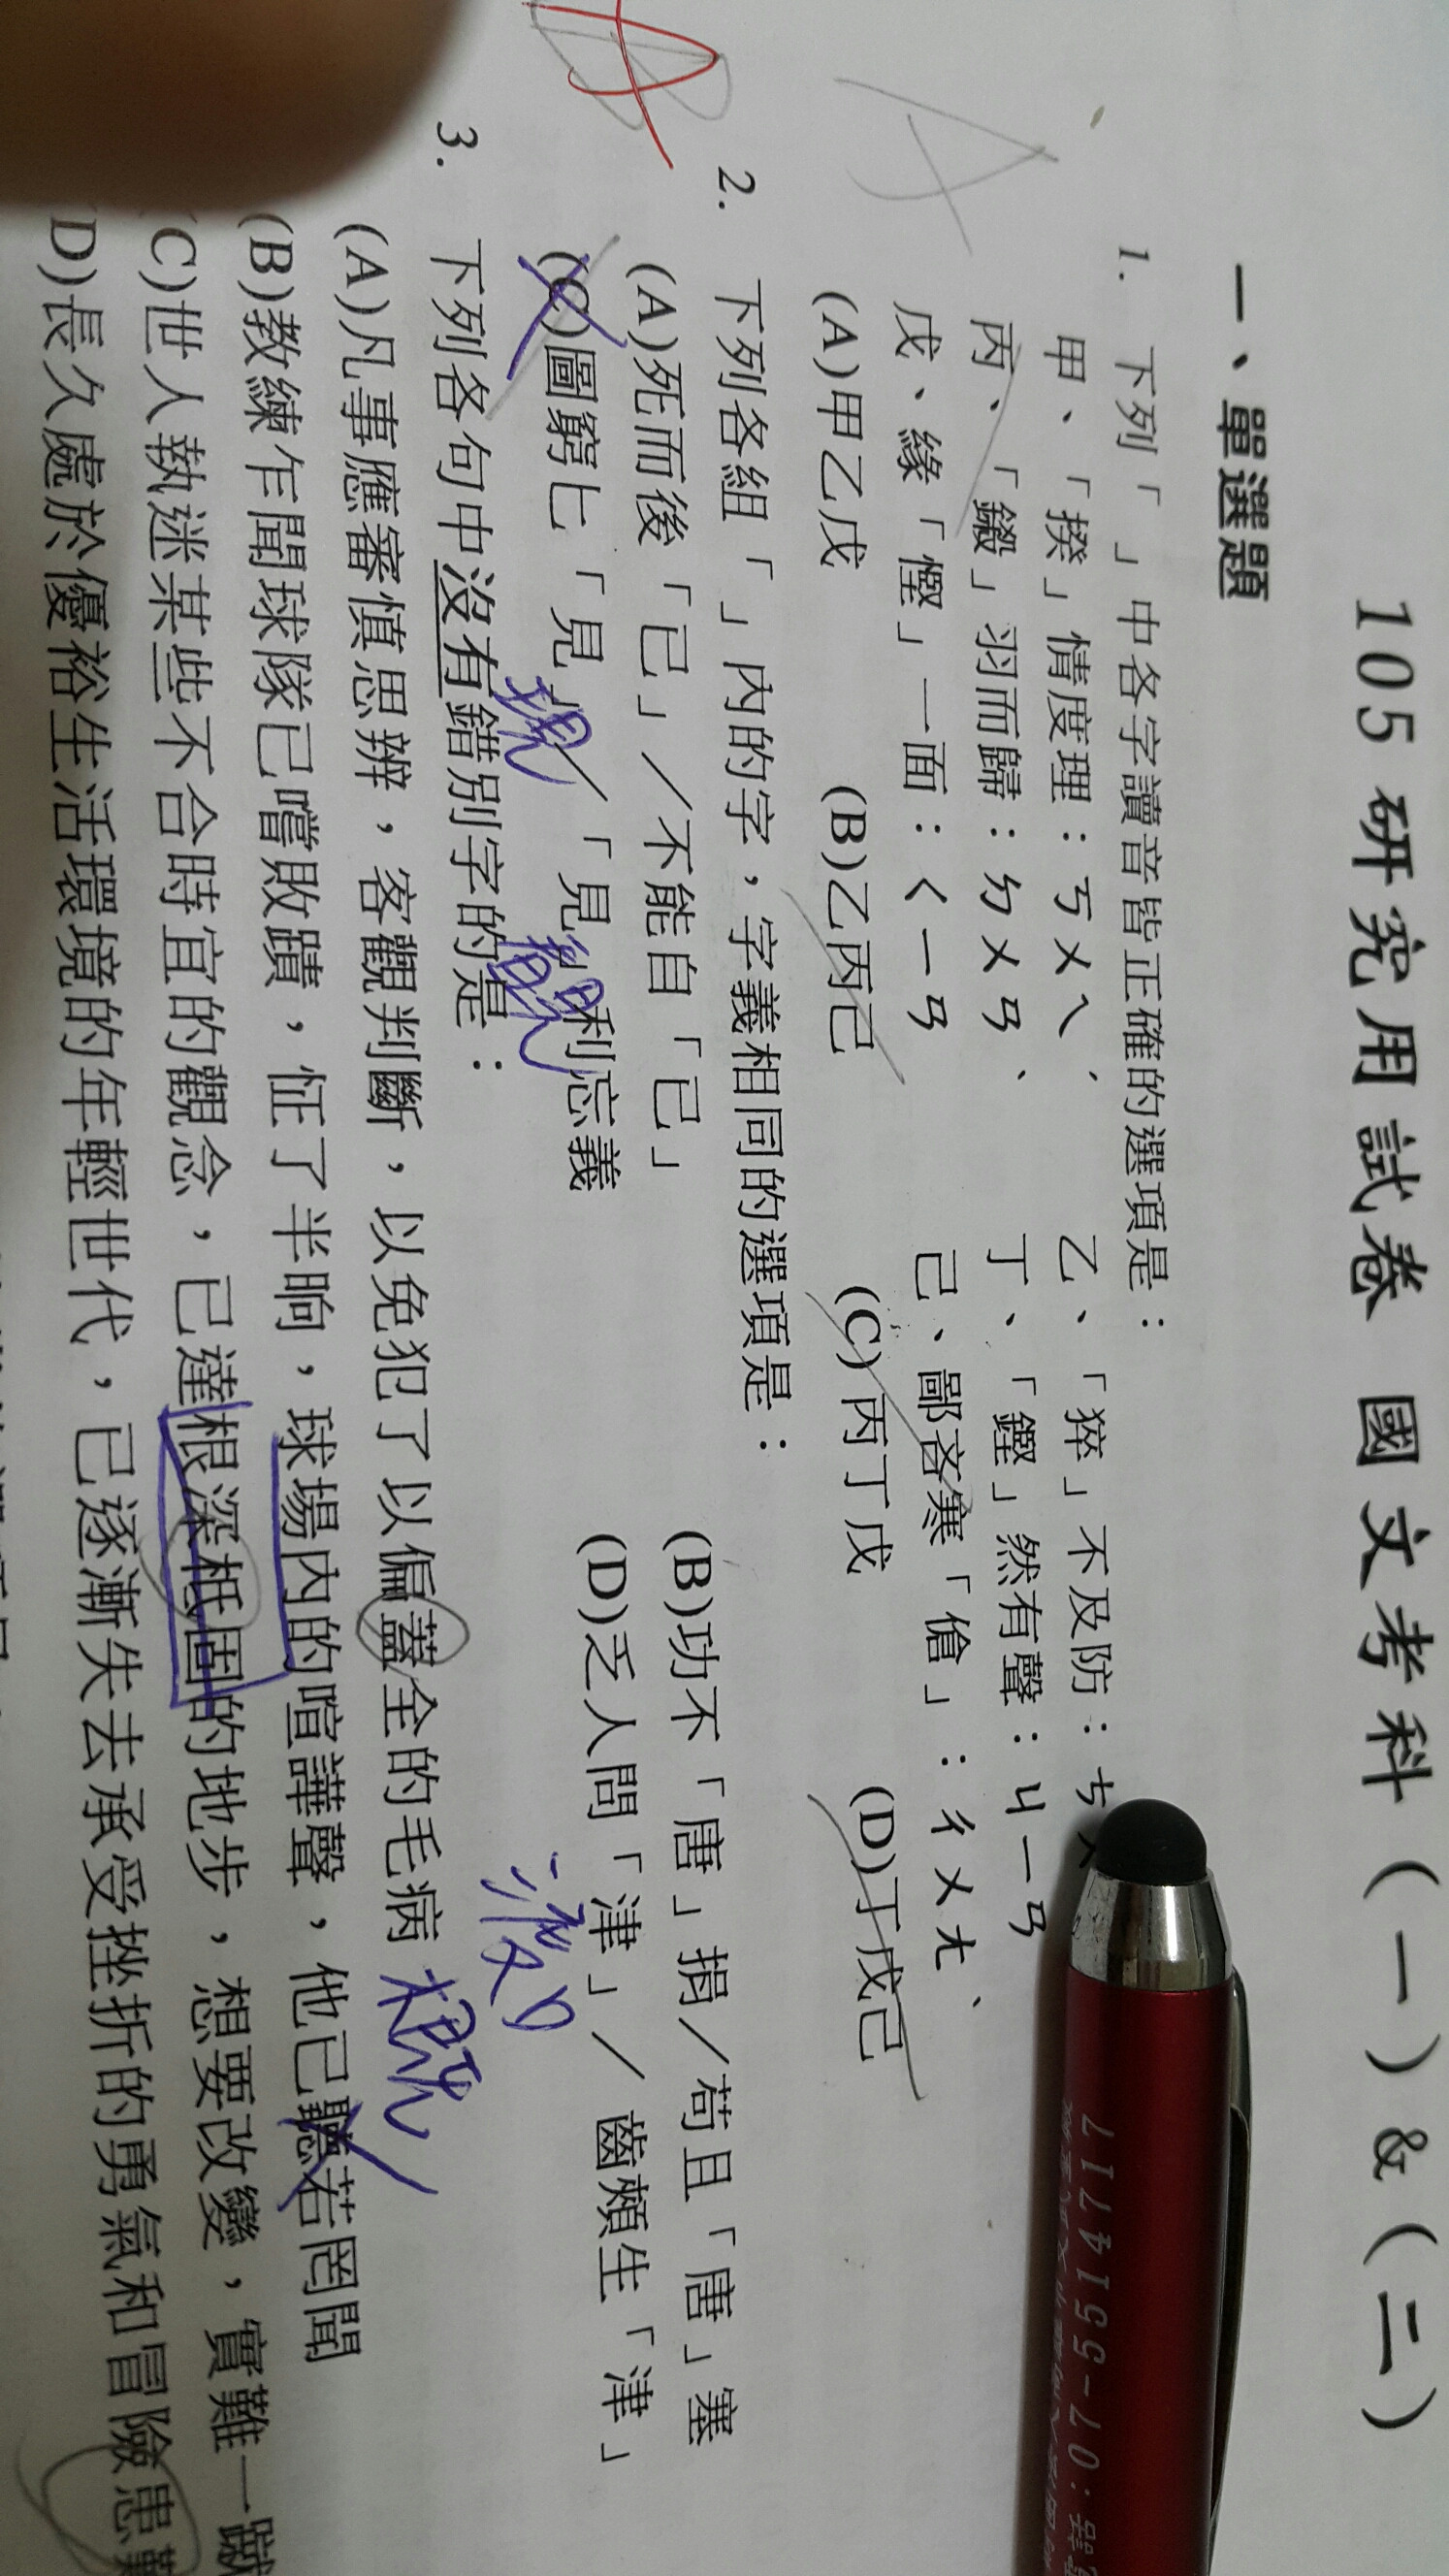 105研究用試卷 國文考科(一)&(二)
一、單選題
1. 下列「 」中各字讀音皆正確的選項是：
甲、「揆」情度理：ㄎㄨㄟˊ 乙、「猝」不及防：ㄘㄨ
丙、「鎩」羽而歸：ㄉㄨㄢˋ 丁、「鏗」然有聲：ㄐㄧㄢ
戊、緣「慳」一面：ㄑㄧㄢ 己、鄙吝寒「傖」：ㄔㄨㄤˋ
(A)甲乙戊 (B)乙丙己 (C)丙丁戊 (D)丁戊己
A
2. 下列各組「 」內的字，字義相同的選項是：
(A)死而後「已」／不能自「已」 (B)功不「唐」捐／荀且「唐」塞
(C)圖窮匕「見」／「見」利忘義 (D)乏人問「津」／齒頰生「津」
現
A
3. 下列各句中沒有錯別字的是：
(A)凡事應審慎思辨，客觀判斷，以免犯了以偏蓋全的毛病
概
(B)教練乍聞球隊已嚐敗蹟，怔了半晌，球場內的喧譁聲，他已聽若罔聞
(C)世人執迷某些不合時宜的觀念，已達根深柢固的地步，想要改變，實難一蹴
D)長久處於優裕生活環境的年輕世代，已逐漸失去承受挫折的勇氣和冒險患難